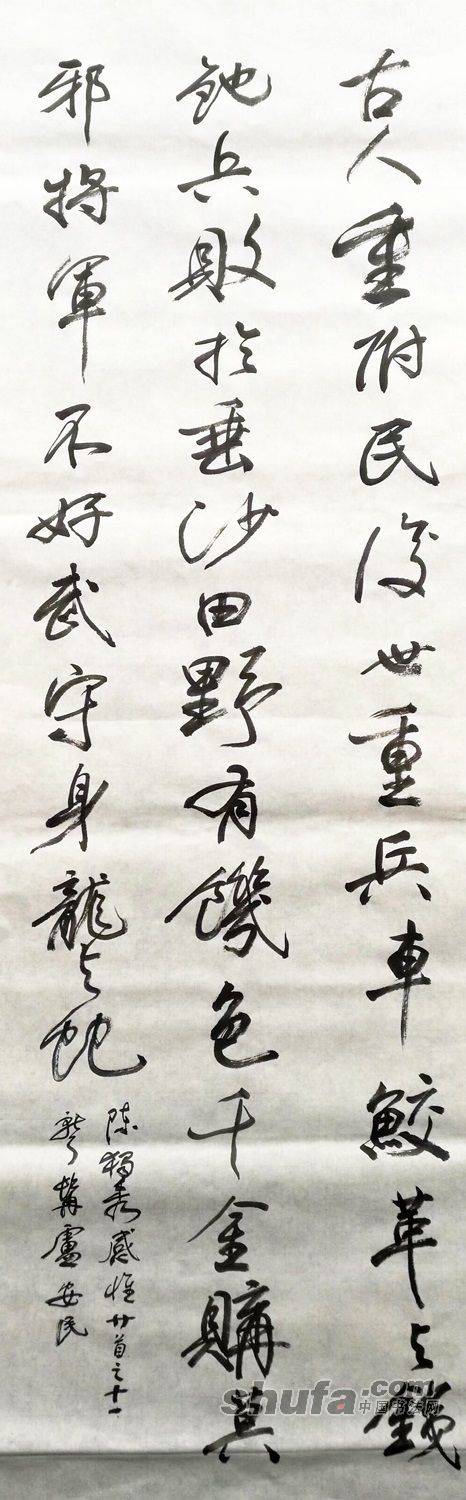 古人重附民後世重兵車鮫革与鐵
釶兵敗於垂沙田野有饑色千金購莫
邪將軍不好武守身龍与蛇
陳獨秀感懷廿首之十一
盧安民
shufa.com
中国书法网